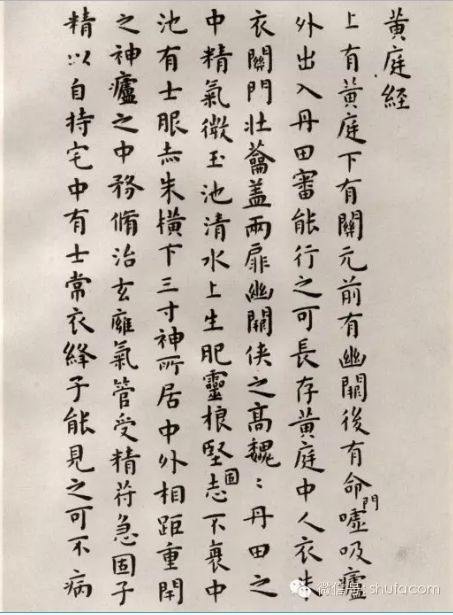 黄庭経
上有黄庭下有關元前有幽闕後有命門噓吸廬
外出入丹田審能行之可長存黄庭中人衣朱
衣關門壯蘥盖兩扉幽闕俠之高魏〻丹田之
中精氣微玉池清水上生肥靈根堅固志不衰中
池有士服赤朱橫下三寸神所居中外相距重閇
之神廬之中務脩治玄廱氣管受精苻急固子
精以自持宅中有士常衣絳子能見之可不病
微信号: shufacom